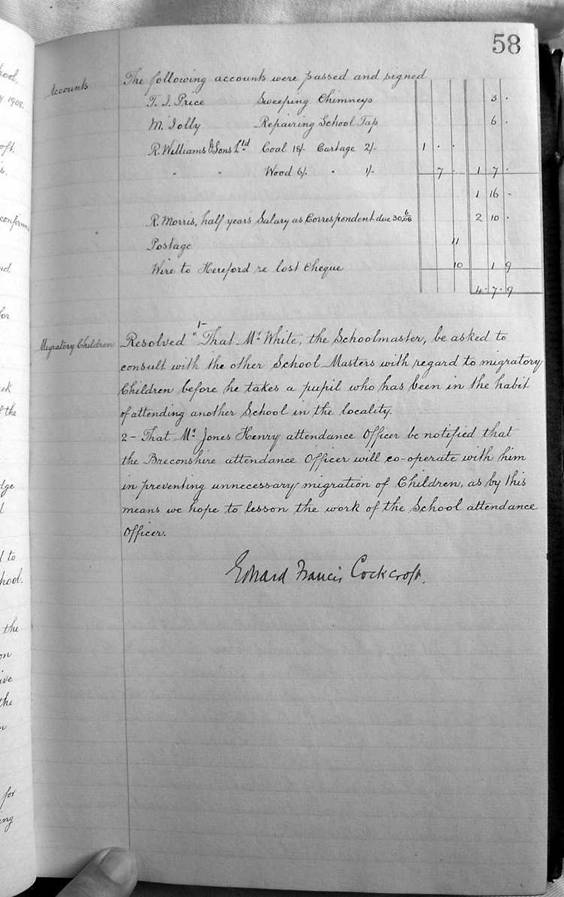 58
Accounts
The following accounts were passed and signed
T. J. Price Sweeping Chimneys 3 .
M. Jolly Repairing School Tap 6 .
R. Williams & Sons Ltd Coal 18/- Cartage 2/- 1 . .
" " Wood 6/- " 1/- 7 . 1 7 .
1 16 -
R. Morris, half years Salary as Correspondent due 2 10 .
Postage 11
Wire to Hereford re lost Cheque 10 1 9
4 . 7 . 9
Migratory Children
Resolved 1- "That Mr. White, the Schoolmaster, be asked to
consult with the other School Masters with regard to migratory
Children before he takes a pupil who has been in the habit
of attending another School in the locality.
2 - That Mr. Jones Henry attendance Officer be notified that
the Breconshire attendance Officer will co-operate with him
in preventing unnecessary migration of Children, as by this
means we hope to lesson the work of the School attendance
Officer.
Edward Francis Cockcroft.